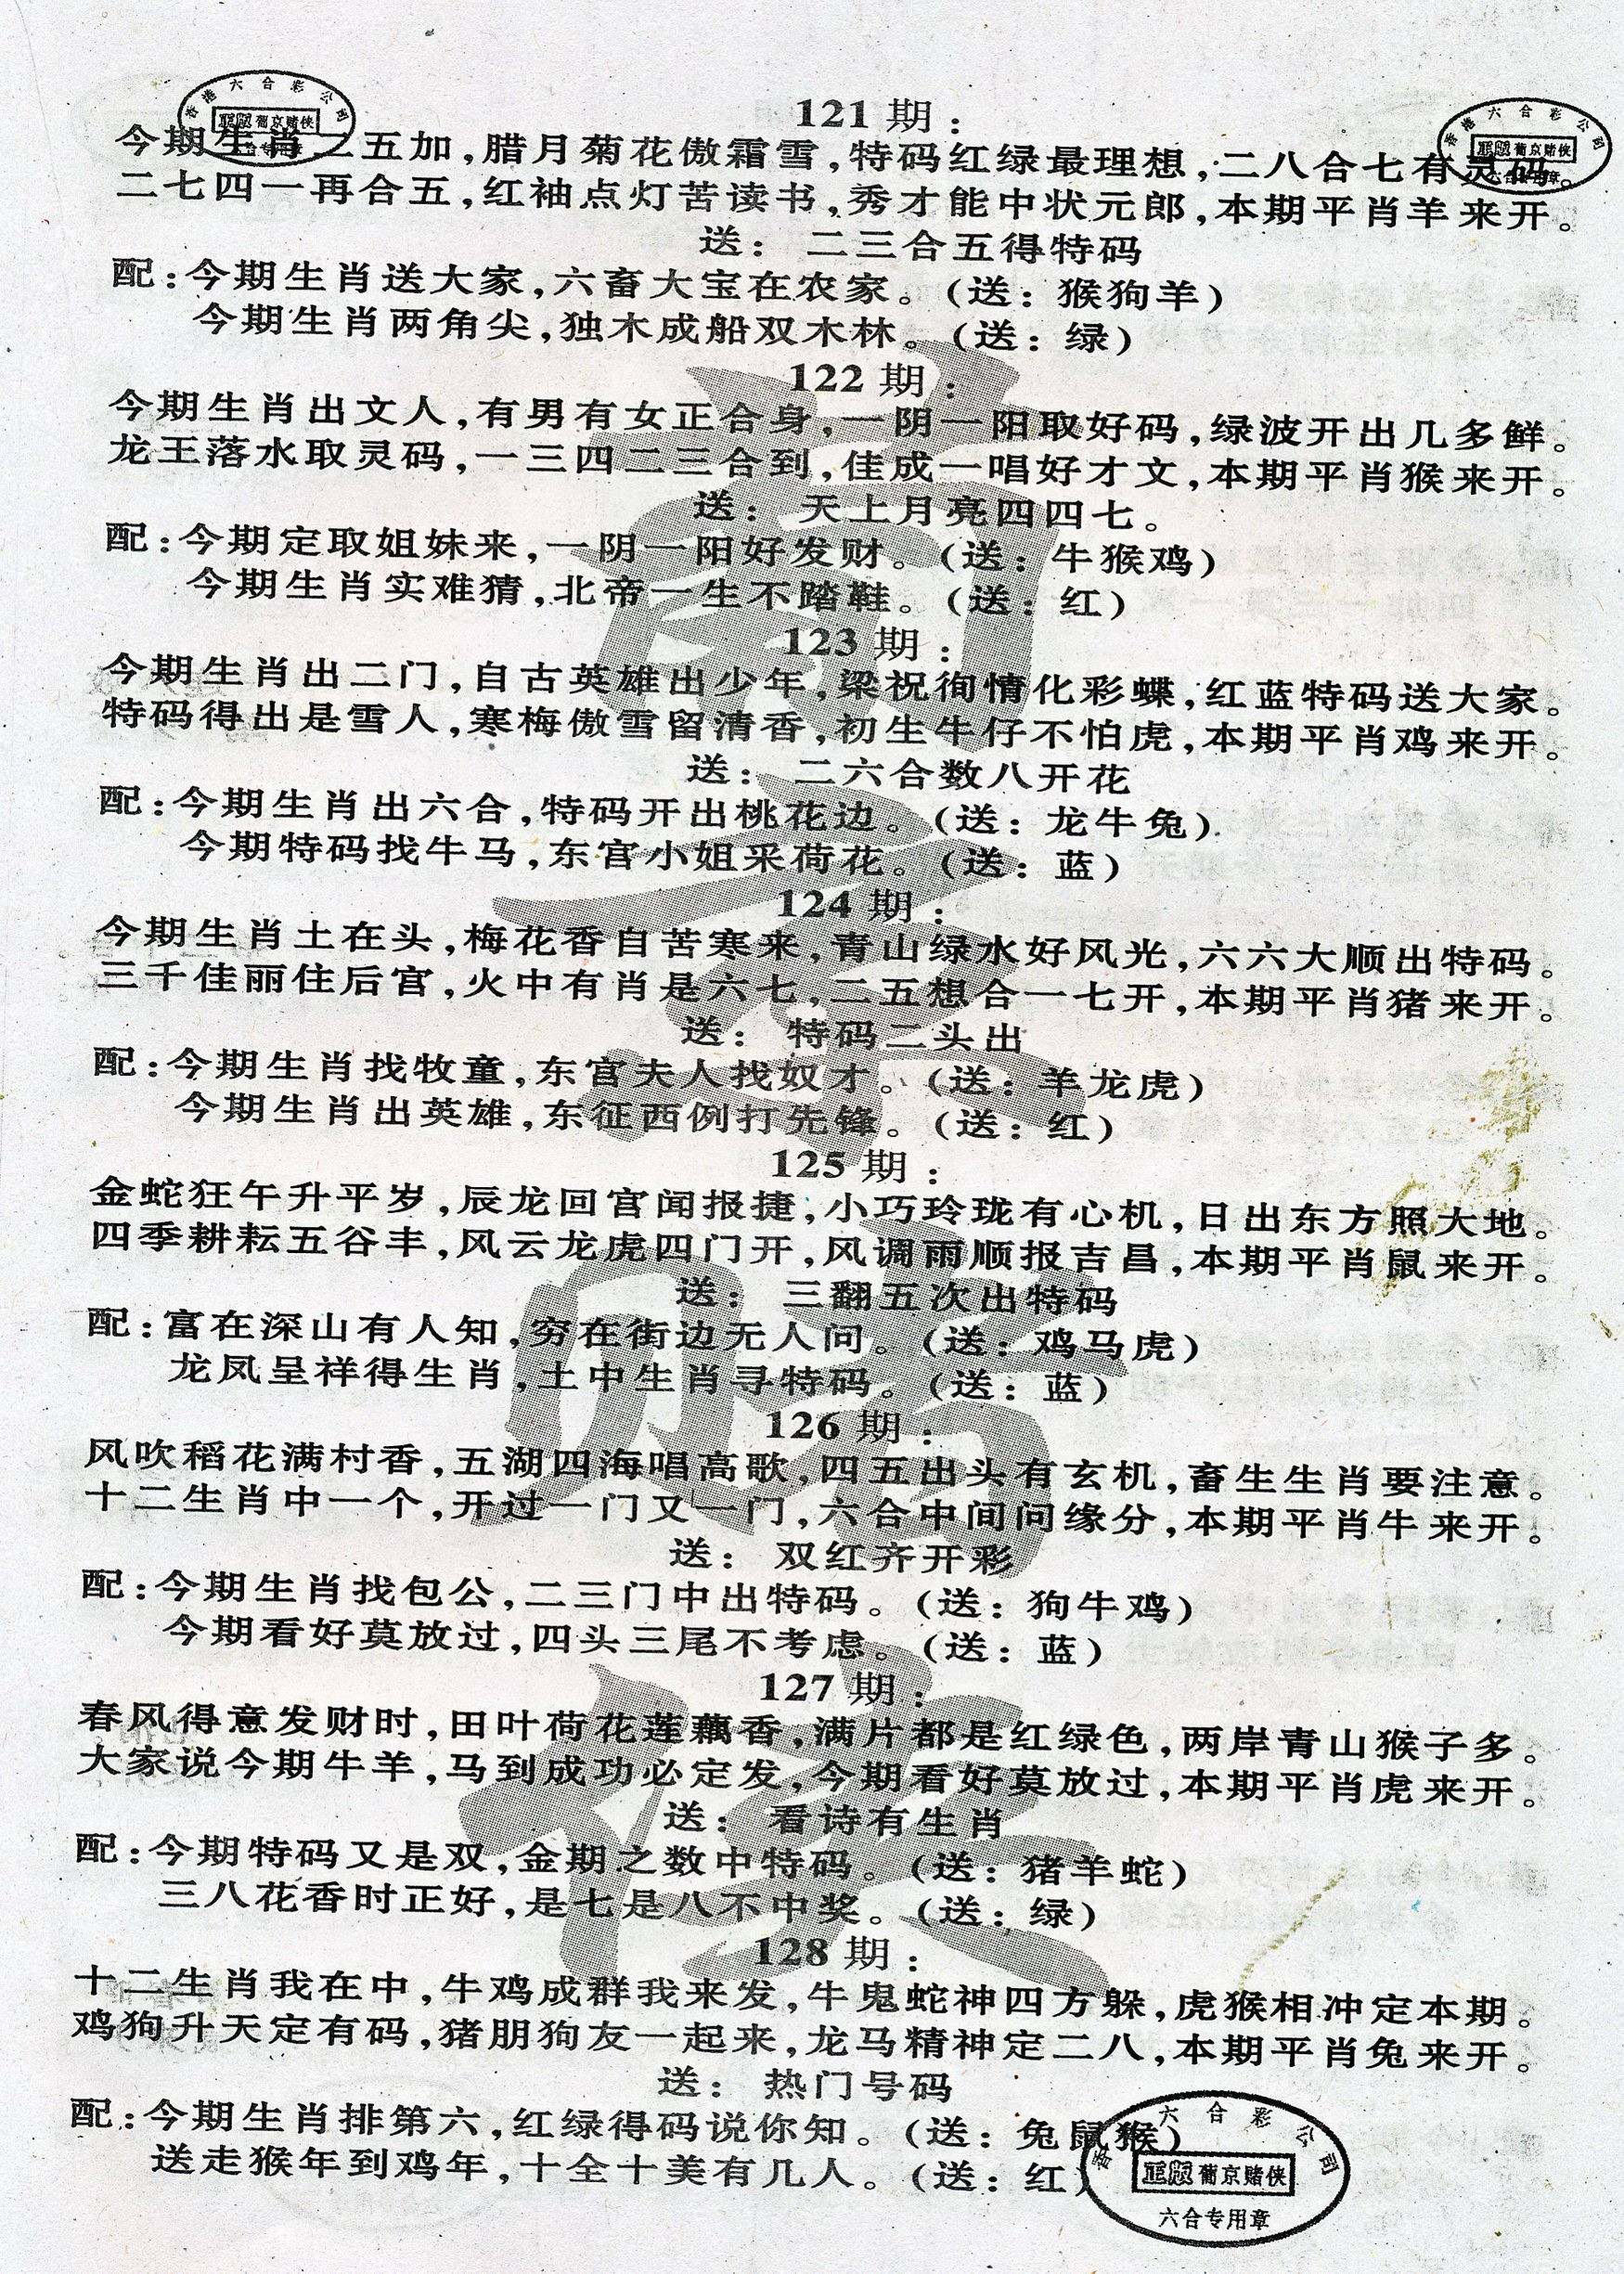 香港六合彩公司
正版 葡京赌侠
六合专用章
香港六合彩公司
正版 葡京赌侠
六合专用章
121期：
今期生肖二五加，腊月菊花傲霜雪，特码红绿最理想，二八合七有灵码。
二七四一再合五，红袖点灯苦读书，秀才能中状元郎，本期平肖羊来开。
送：二三合五得特码
配：今期生肖送大家，六畜大宝在农家。（送：猴狗羊）
今期生肖两角尖，独木成船双木林。（送：绿）
122期：
今期生肖出文人，有男有女正合身，一阴一阳取好码，绿波开出几多鲜。
龙王落水取灵码，一三四二三合到，佳成一唱好才文，本期平肖猴来开。
送：天上月亮四四七。
配：今期定取姐妹来，一阴一阳好发财。（送：牛猴鸡）
今期生肖实难猜，北帝一生不踏鞋。（送：红）
123期：
今期生肖出二门，自古英雄出少年，梁祝徇情化彩蝶，红蓝特码送大家。
特码得出是雪人，寒梅傲雪留清香，初生牛仔不怕虎，本期平肖鸡来开。
送：二六合数八开花
配：今期生肖出六合，特码开出桃花边。（送：龙牛兔）
今期特码找牛马，东宫小姐采荷花。（送：蓝）
124期：
今期生肖土在头，梅花香自苦寒来，青山绿水好风光，六六大顺出特码。
三千佳丽住后宫，火中有肖是六七，二五想合一七开，本期平肖猪来开。
送：特码二头出
配：今期生肖找牧童，东宫夫人找奴才。（送：羊龙虎）
今期生肖出英雄，东征西例打先锋。（送：红）
125期：
金蛇狂午升平岁，辰龙回宫闻报捷，小巧玲珑有心机，日出东方照大地。
四季耕耘五谷丰，风云龙虎四门开，风调雨顺报吉昌，本期平肖鼠来开。
送：三翻五次出特码
配：富在深山有人知，穷在街边无人问。（送：鸡马虎）
龙凤呈祥得生肖，土中生肖寻特码。（送：蓝）
126期：
风吹稻花满村香，五湖四海唱高歌，四五出头有玄机，畜生生肖要注意。
十二生肖中一个，开过一门又一门，六合中间问缘分，本期平肖牛来开。
送：双红齐开彩
配：今期生肖找包公，二三门中出特码。（送：狗牛鸡）
今期看好莫放过，四头三尾不考虑。（送：蓝）
127期：
春风得意发财时，田叶荷花莲藕香，满片都是红绿色，两岸青山猴子多。
大家说今期牛羊，马到成功必定发，今期看好莫放过，本期平肖虎来开。
送：看诗有生肖
配：今期特码又是双，金期之数中特码。（送：猪羊蛇）
三八花香时正好，是七是八不中奖。（送：绿）
128期：
十二生肖我在中，牛鸡成群我来发，牛鬼蛇神四方躲，虎猴相冲定本期。
鸡狗升天定有码，猪朋狗友一起来，龙马精神定二八，本期平肖兔来开。
送：热门号码
配：今期生肖排第六，红绿得码说你知。（送：兔鼠猴）
送走猴年到鸡年，十全十美有几人。（送：红）
香港六合彩公司
正版 葡京赌侠
六合专用章
葡京赌侠